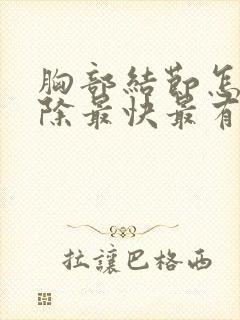 胸部結節怎
除最快最有
拉讓巴格西